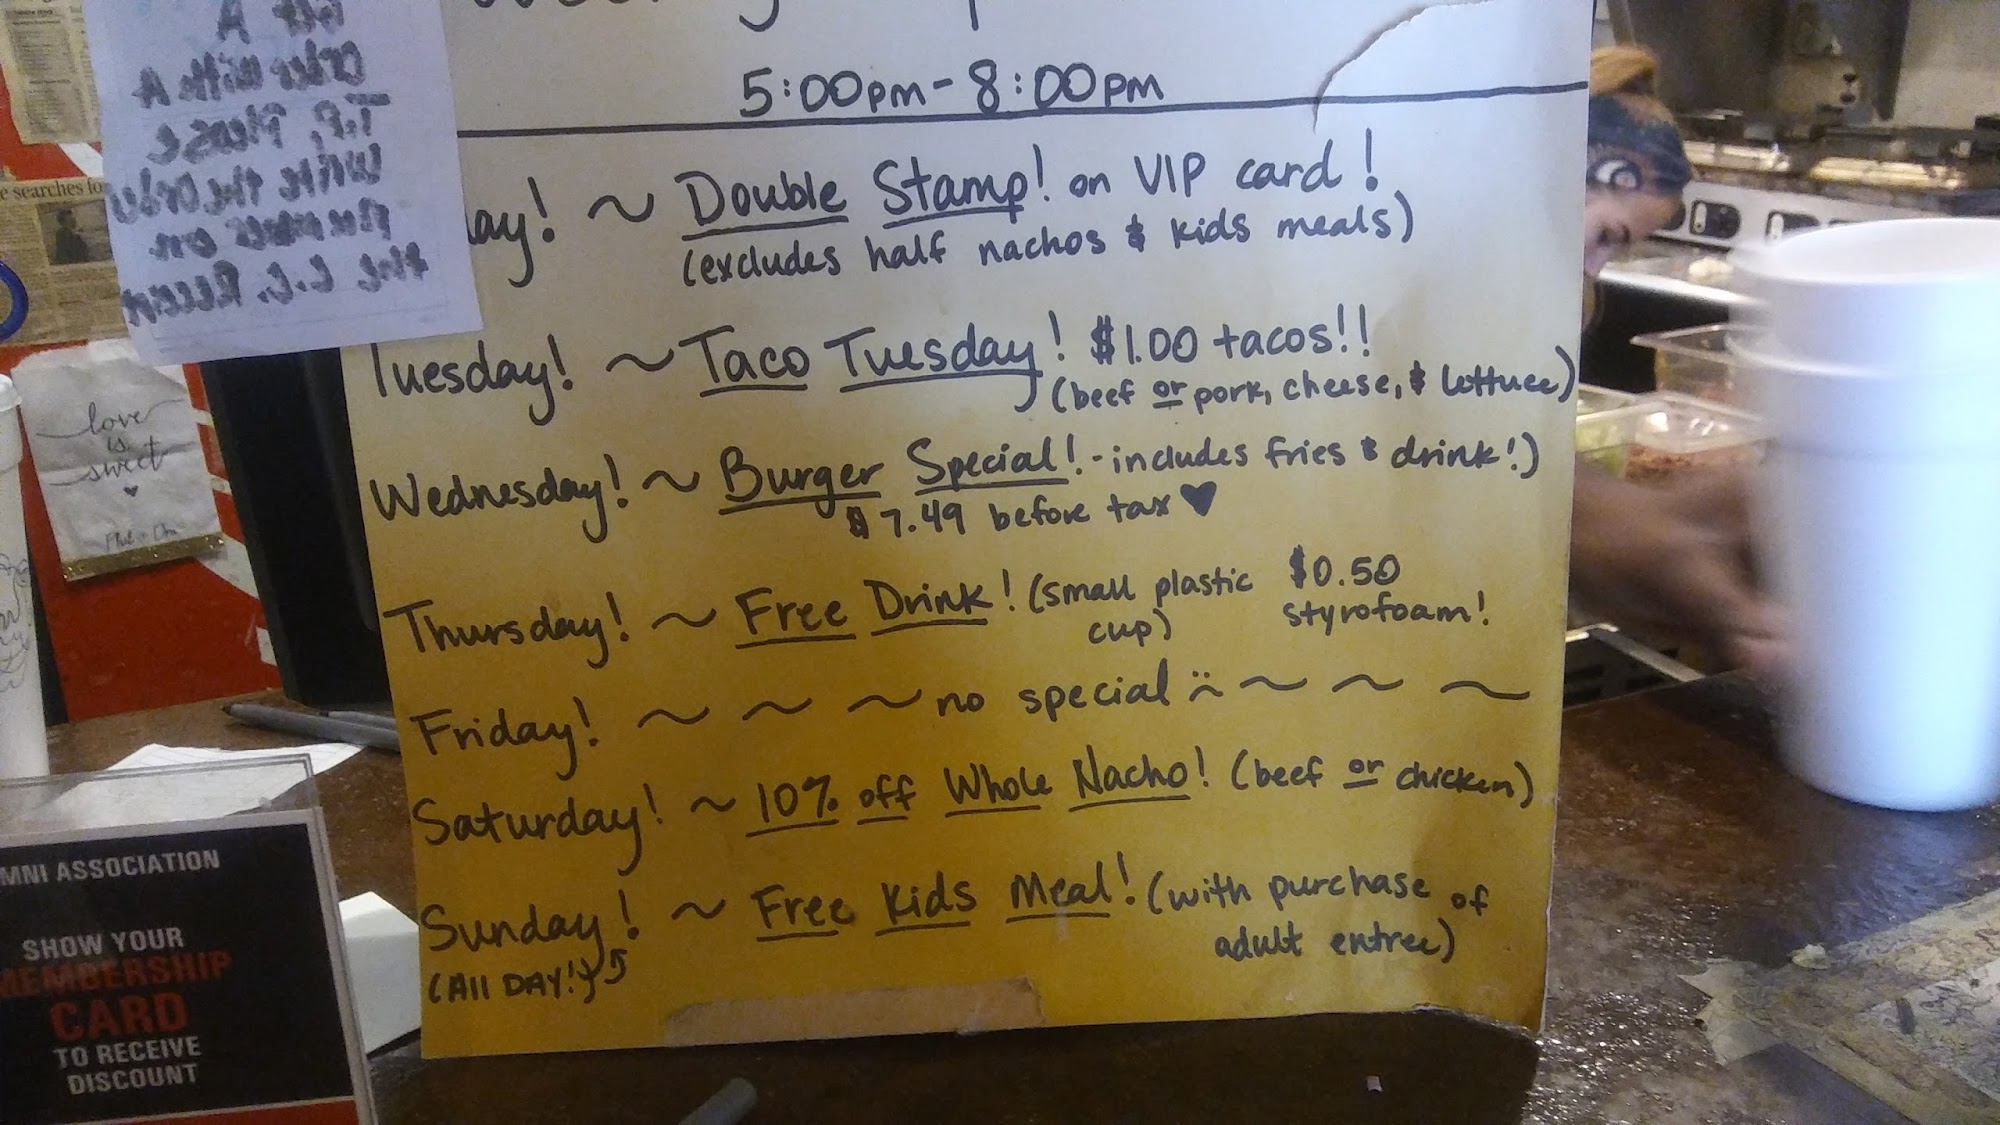 5:00pm - 8:00pm
ay! ~ Double Stamp! on VIP card!
(excludes half nachos & kids meals)
Tuesday! ~ Taco Tuesday! $1.00 tacos!!
(beef or pork, cheese, & lettuce)
Wednesday! ~ Burger Special! - includes fries & drink!)
$7.49 before tax ♥
Thursday! ~ Free Drink! (small plastic cup) $0.50 styrofoam!
Friday! ~ ~ ~ no special ~ ~ ~
Saturday! ~ 10% off Whole Nacho! (beef or chicken)
Sunday! ~ Free Kids Meal! (with purchase of adult entree)
(All DAY!)
e searches fo
love
is
sweet
MNI ASSOCIATION
SHOW YOUR
MEMBERSHIP
CARD
TO RECEIVE
DISCOUNT